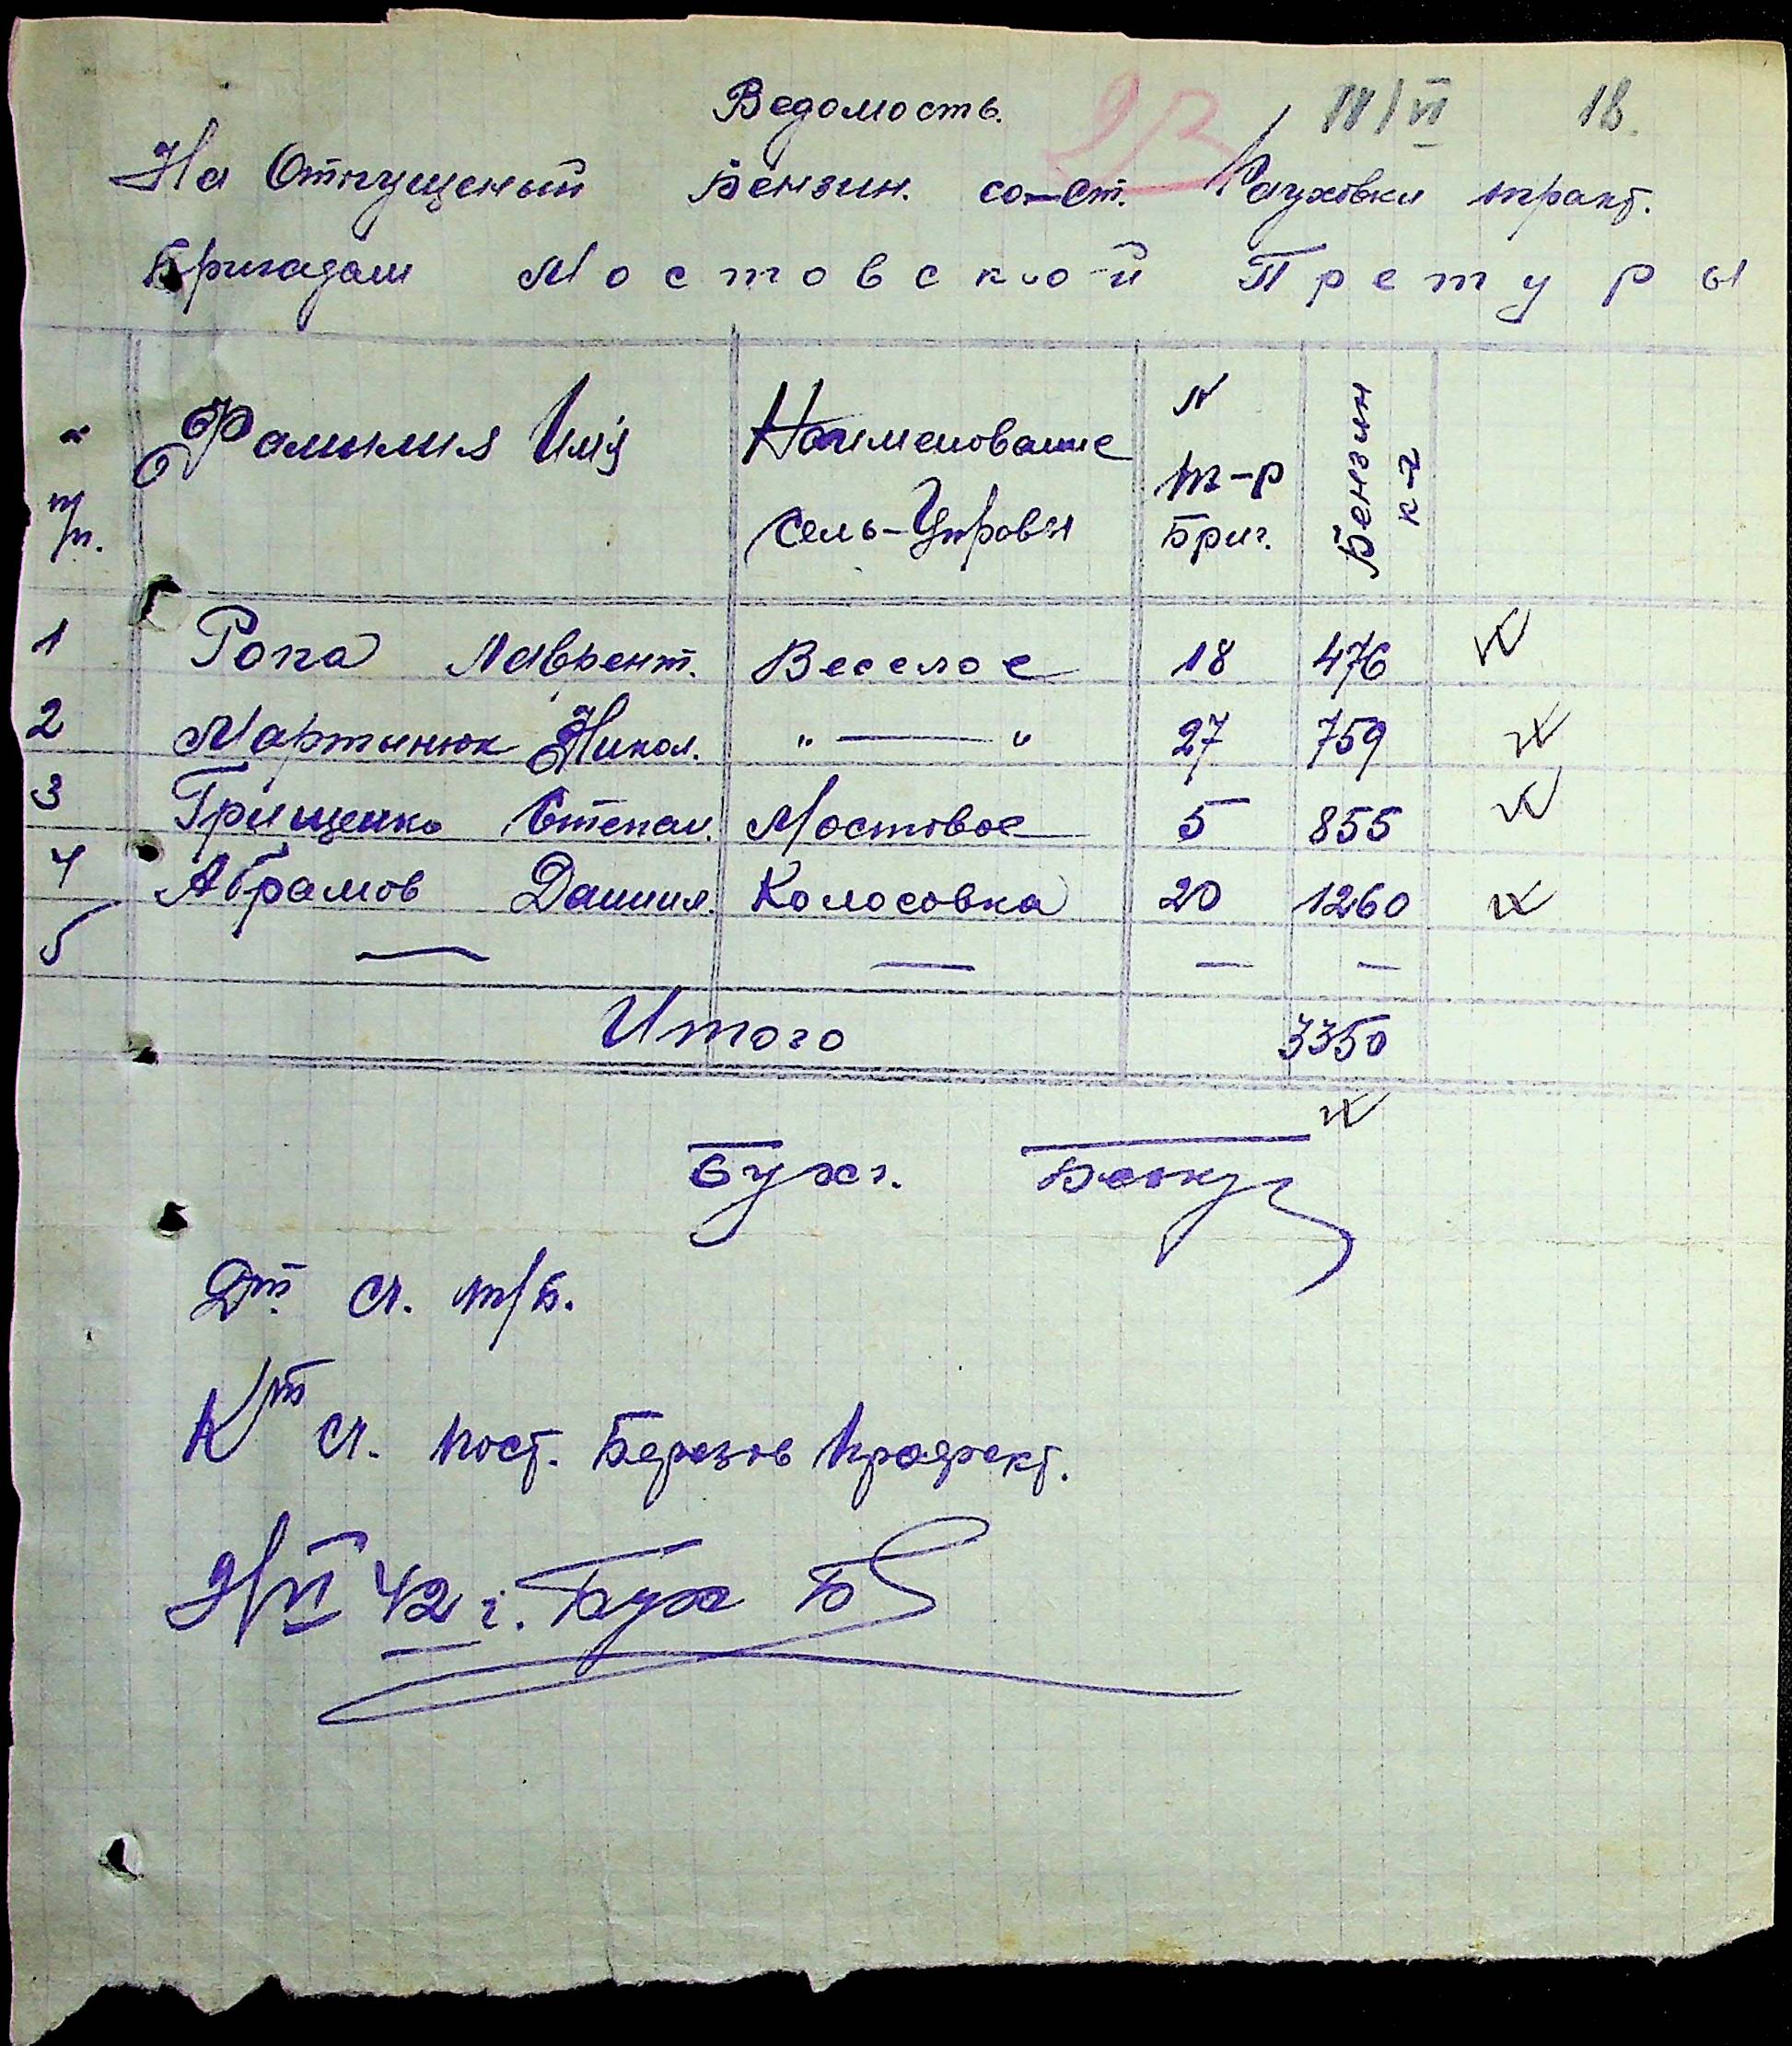 Ведомость.
18
На Отпущеный Бензин. со-ст. Рауховки тракт.
Бригадам Мостовской Претуры
п/п. Фамилия Имя Наименование Сель-Управы № т-р Бриг. Бензин к-г
1 Ропа Лаврент. Веселое 18 476
2 Мартынюк Никол. " — " 27 759
3 Грищенко Степан. Мостовое 5 855
4 Абрамов Даниил. Колосовка 20 1260
5 — — — —
Итого 3350
Бухг.
Дт. сч. т/б.
Кт сч. пост. Березов префект.
VI 42 г. Бух